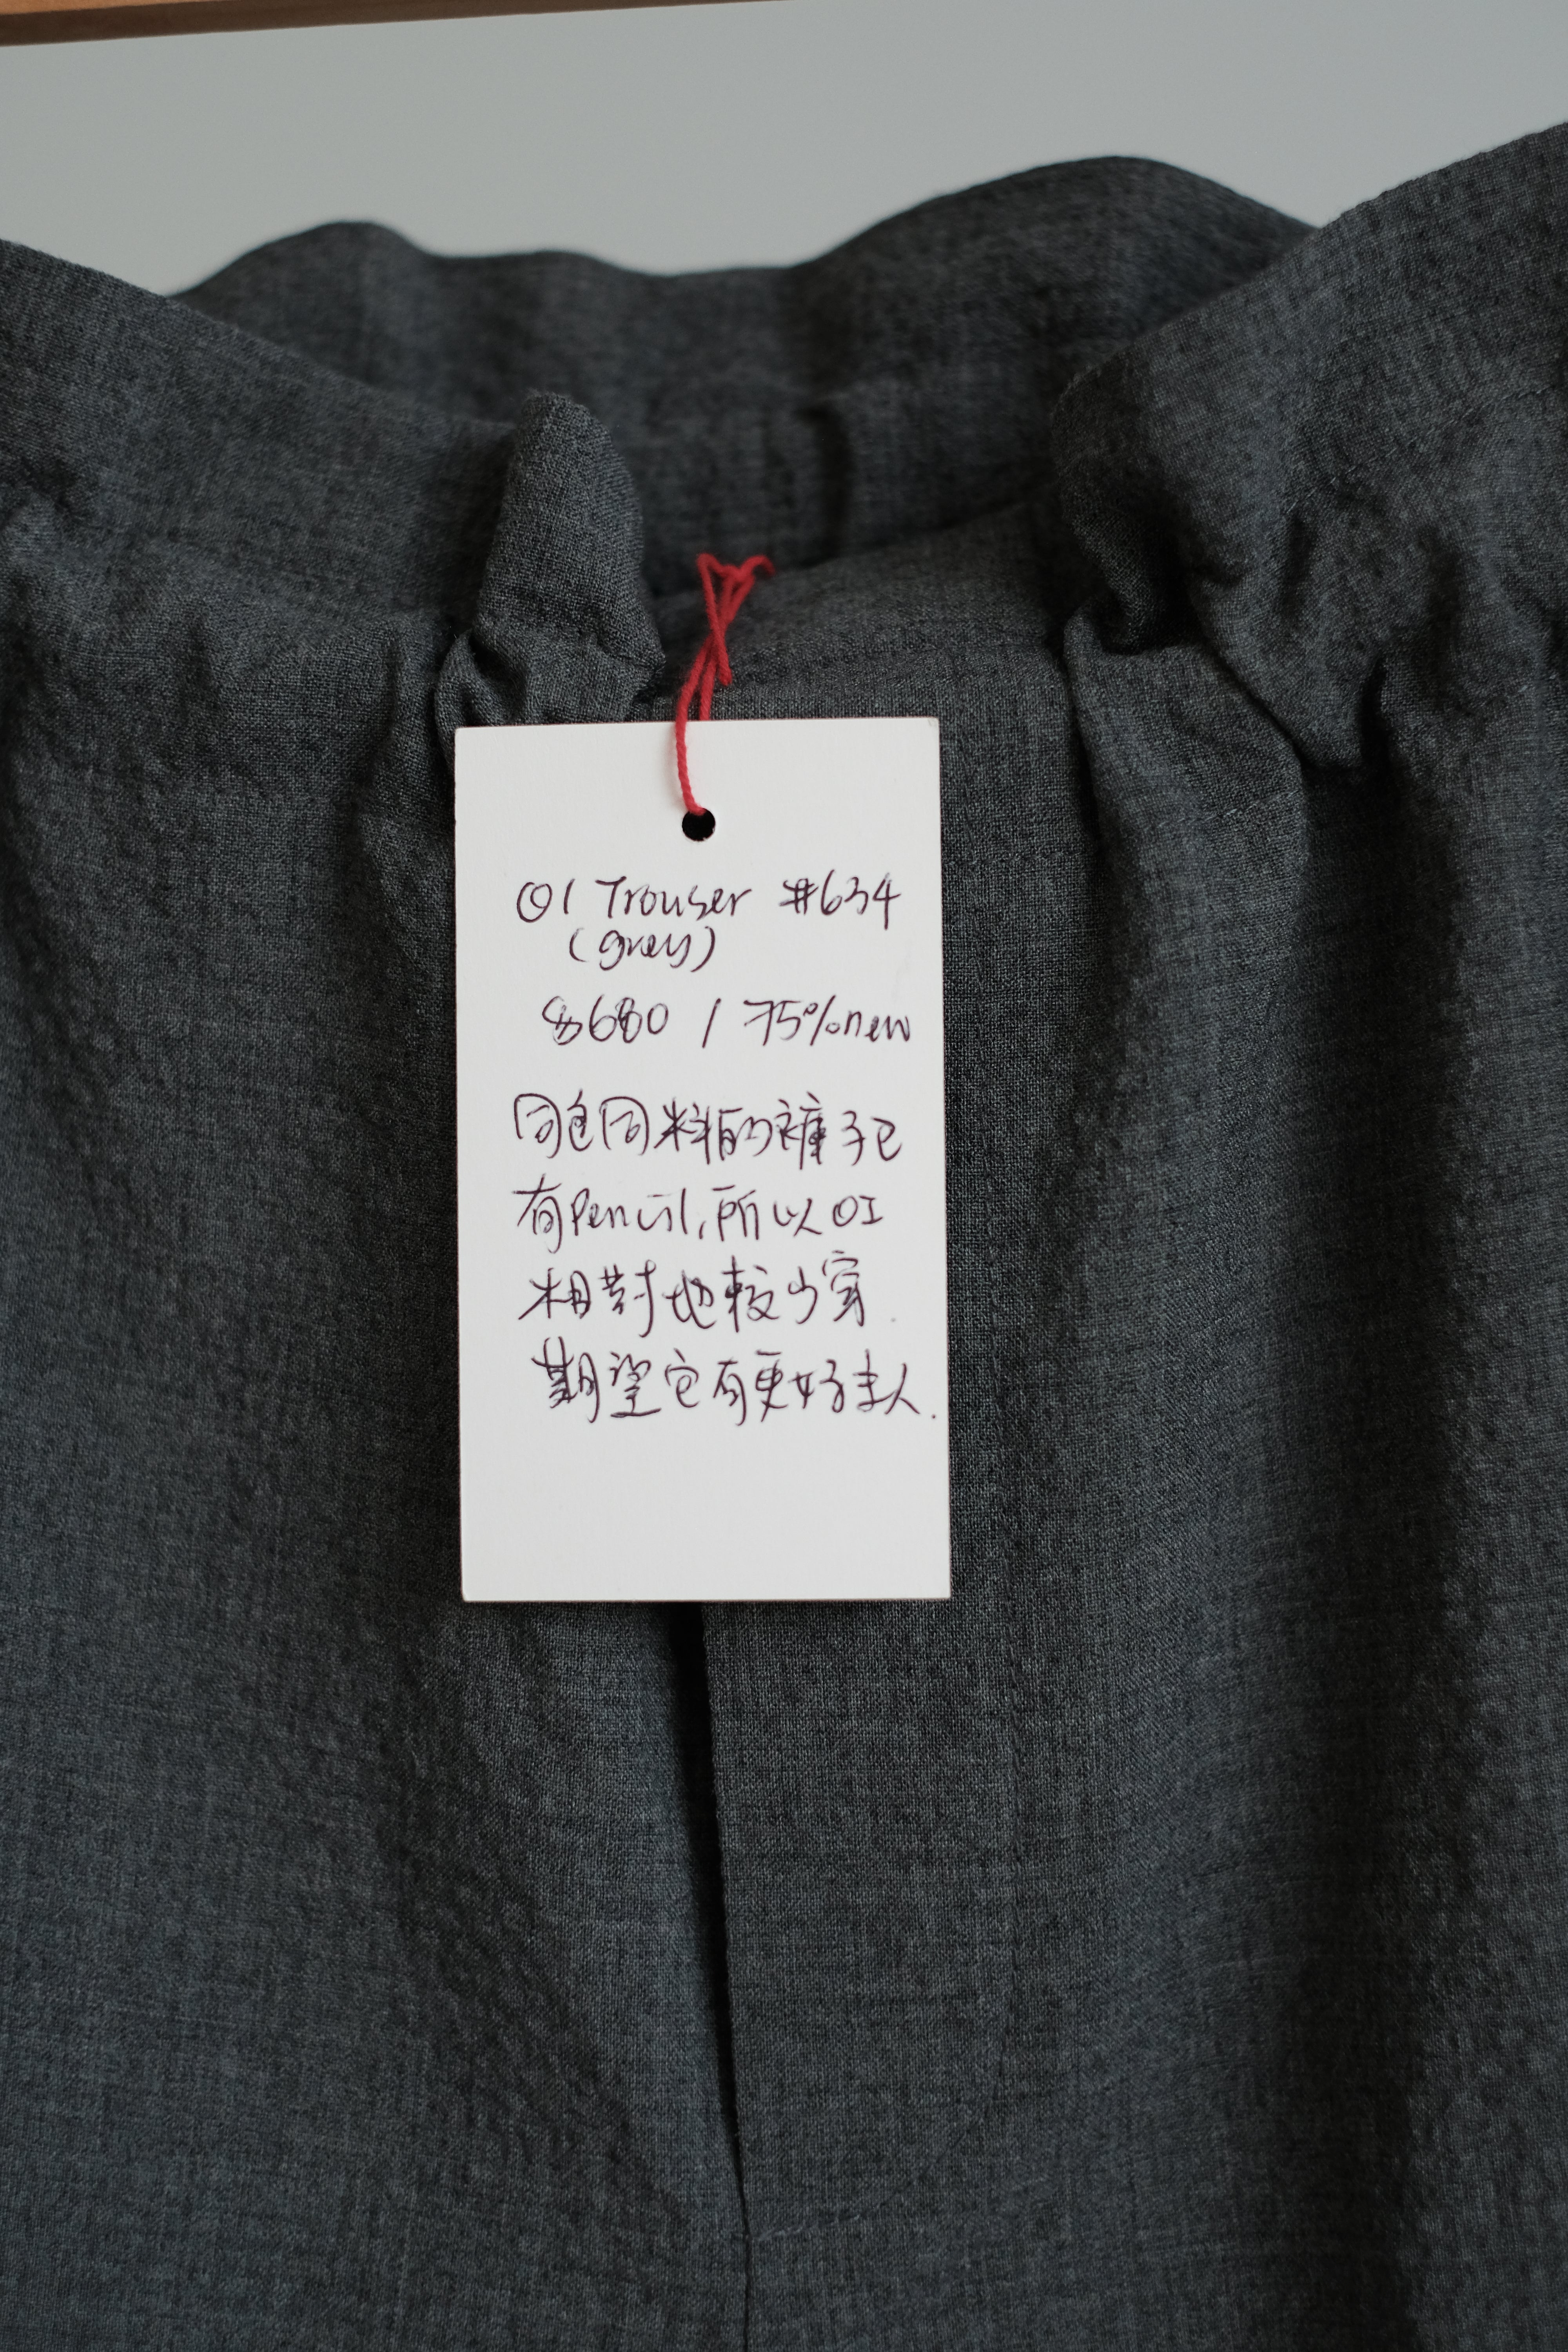 01 Trouser #634
(grey)
$680 / 75%new
同色同料的褲子已
有Pencil,所以01
相對地較少穿.
期望它有更好主人.